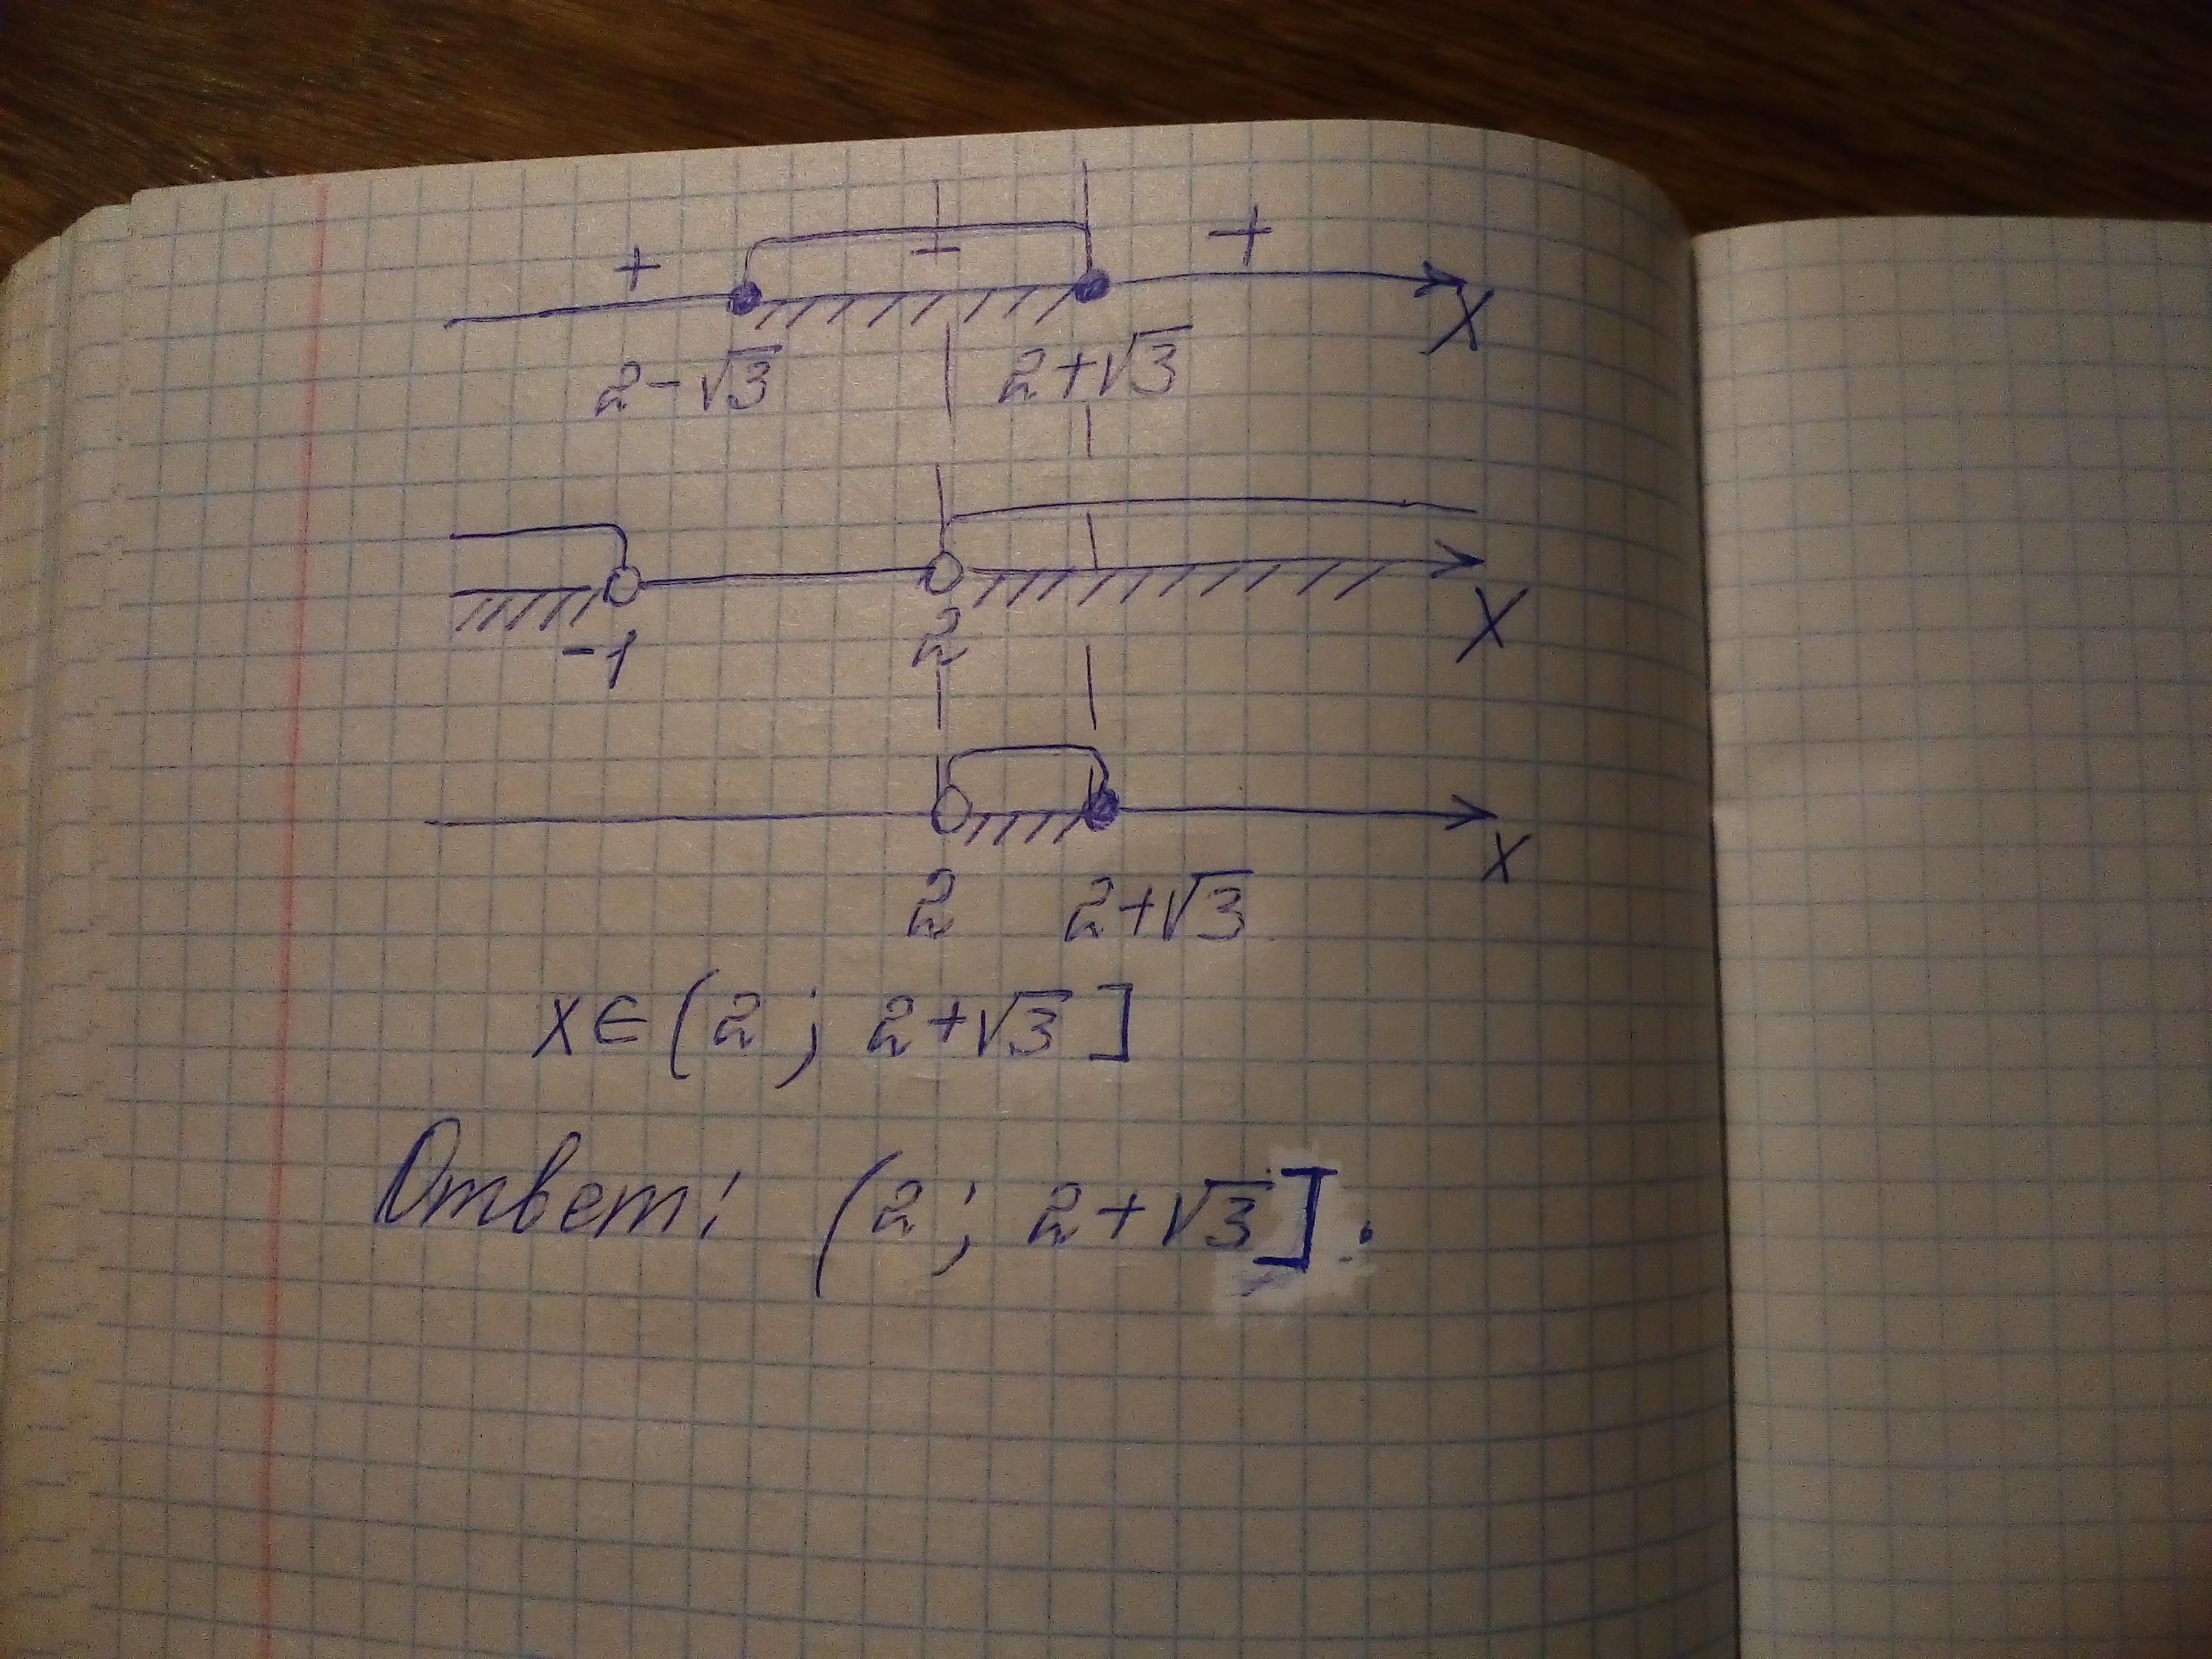 + - +
2-√3 2+√3 X
-1 2 X
X
2 2+√3
x∈(2; 2+√3]
Ответ: (2; 2+√3].